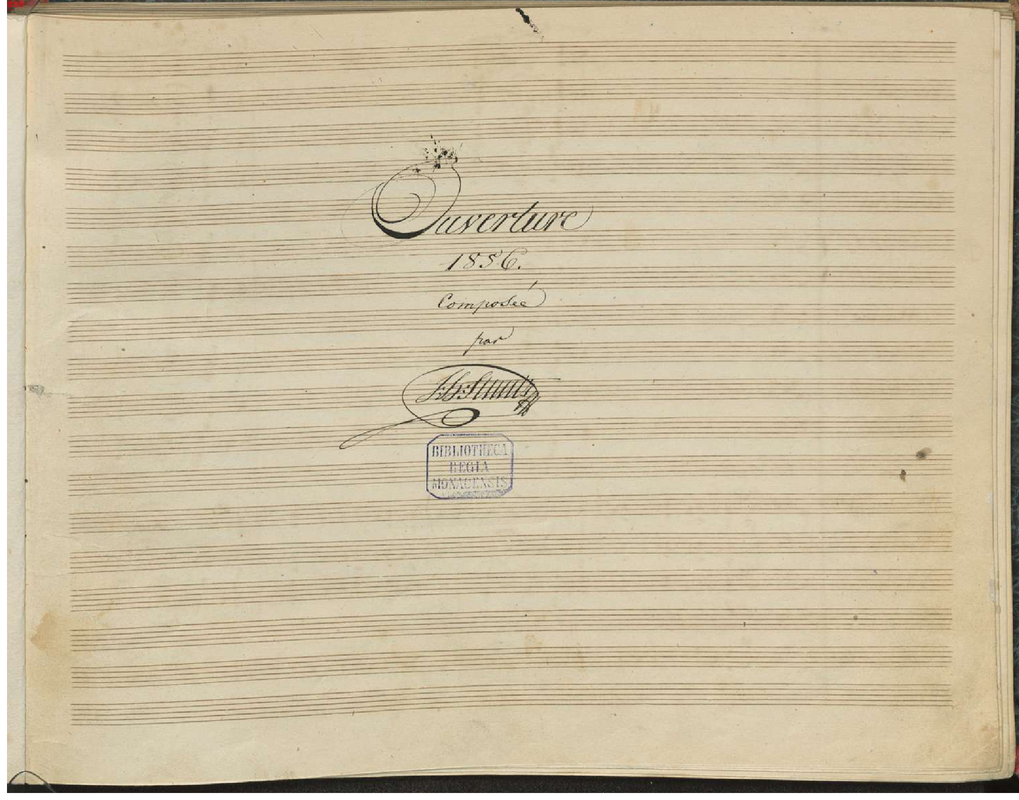 Ouverture
1856.
Composée
par
J:H:Stuntz
BIBLIOTHECA
REGIA
MONACENSIS